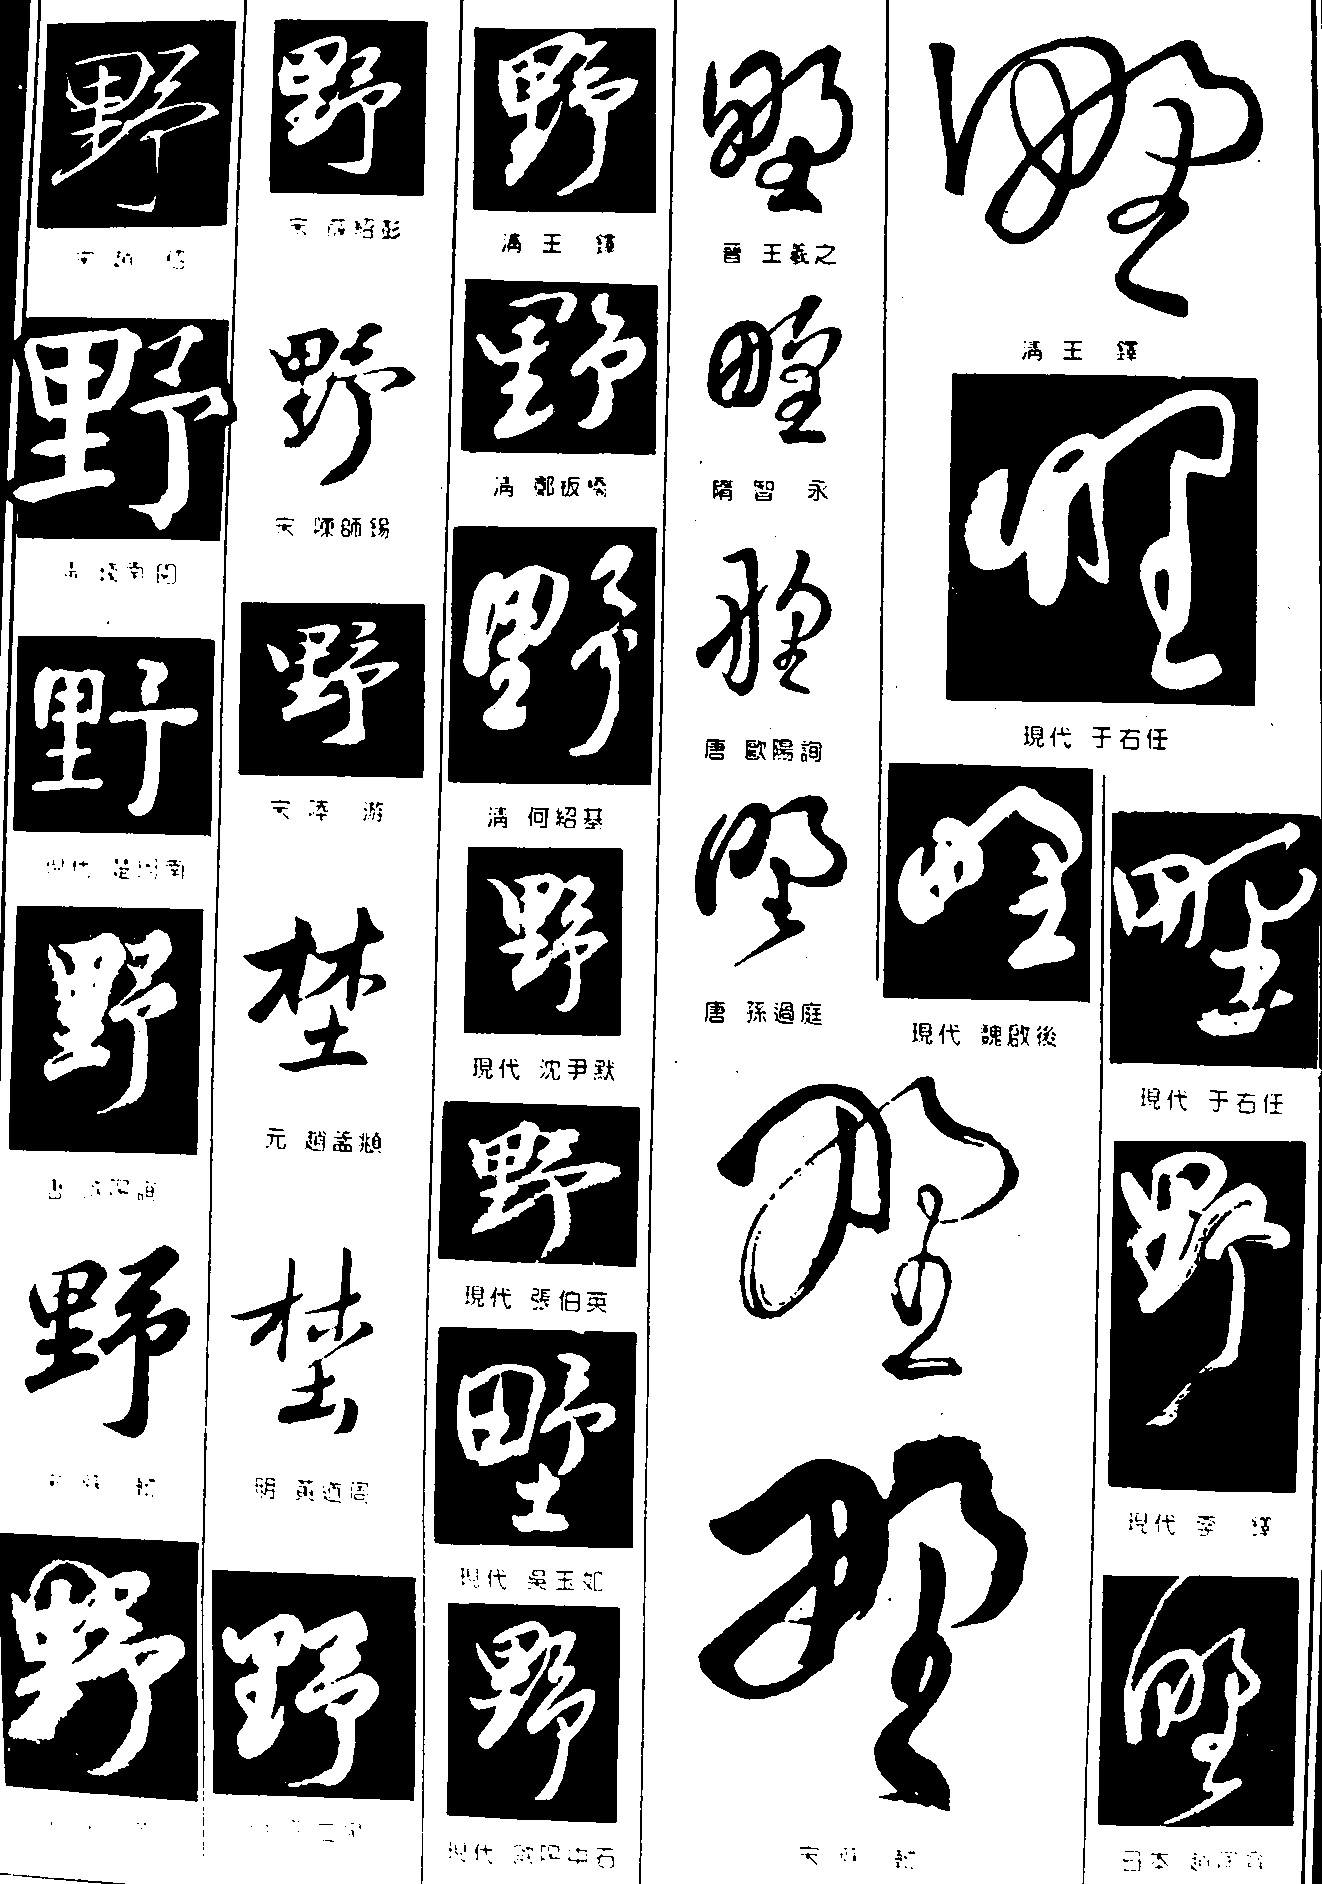 野
宋 趙 佶
野
野
現代
野
野
宋 薛紹彭
野
宋 陳師錫
野
宋 陸 游
埜
元 趙孟頫
埜
明 黃道周
野
野
野
清 王 鐸
野
清 鄭板橋
野
清 何紹基
野
現代 沈尹默
野
現代 張伯英
野
現代 吳玉如
野
現代 歐陽中石
野
晉 王羲之
野
隋 智 永
野
唐 歐陽詢
野
唐 孫過庭
野
野
宋
野
清 王 鐸
野
現代 于右任
野
現代 魏啟後
野
現代 于右任
野
現代
野
日本